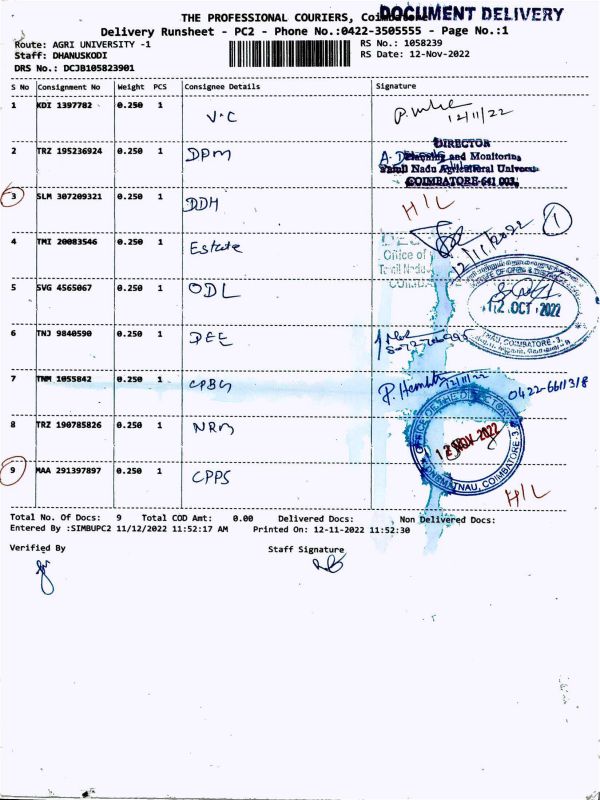 THE PROFESSIONAL COURIERS, Coimbatore
DOCUMENT DELIVERY
Delivery Runsheet - PC2 - Phone No.:0422-3505555 - Page No.:1
Route: AGRI UNIVERSITY -1
RS No.: 1058239
Staff: DHANUSKODI
RS Date: 12-Nov-2022
DRS No.: DCJB105823901
S No Consignment No Weight PCS Consignee Details Signature
1 KDI 1397782 0.250 1 V.C 12/11/22
2 TRZ 195236924 0.250 1 DPM
DIRECTOR
Planning and Monitoring
Tamil Nadu Agricultural University
COIMBATORE-641 003.
3 SLM 307209321 0.250 1 DDH H/L
4 TMI 20083546 0.250 1 Estate 12/11/2022 1
Office of
Tamil Nadu
COIMB
5 SVG 4565067 0.250 1 ODL
12 OCT 2022
TNAU, COIMBATORE - 3.
6 TNJ 9840590 0.250 1 DEE
7 TNM 1055842 0.250 1 CPBG 12/11/22 0422-6611318
8 TRZ 190785826 0.250 1 NRM
OFFICE OF THE DIRECTOR
12 NOV 2022
TNAU, COIMBATORE-3.
9 MAA 291397897 0.250 1 CPPS H/L
Total No. Of Docs: 9 Total COD Amt: 0.00 Delivered Docs: Non Delivered Docs:
Entered By :SIMBUPC2 11/12/2022 11:52:17 AM Printed On: 12-11-2022 11:52:30
Verified By Staff Signature